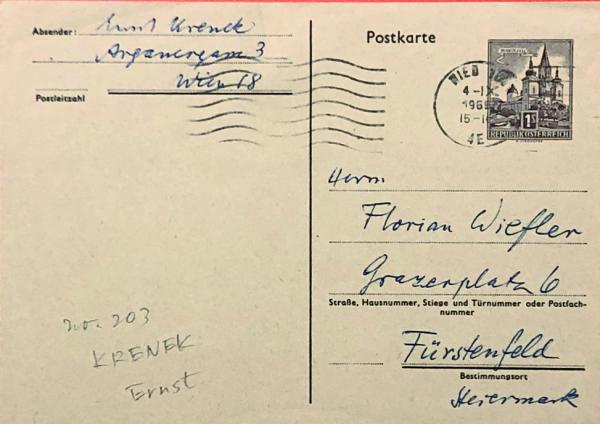 Absender: Ernst Krenek
Arganergasse 3
Wien 18
Postleitzahl
Postkarte
WIEN
4-IX
196
15-1
4E
1S
REPUBLIK ÖSTERREICH
Herrn
Florian Wiefler
Grazerplatz 6
Straße, Hausnummer, Stiege und Türnummer oder Postfach-
nummer
Fürstenfeld
Bestimmungsort
Steiermark
no. 203
KRENEK
Ernst